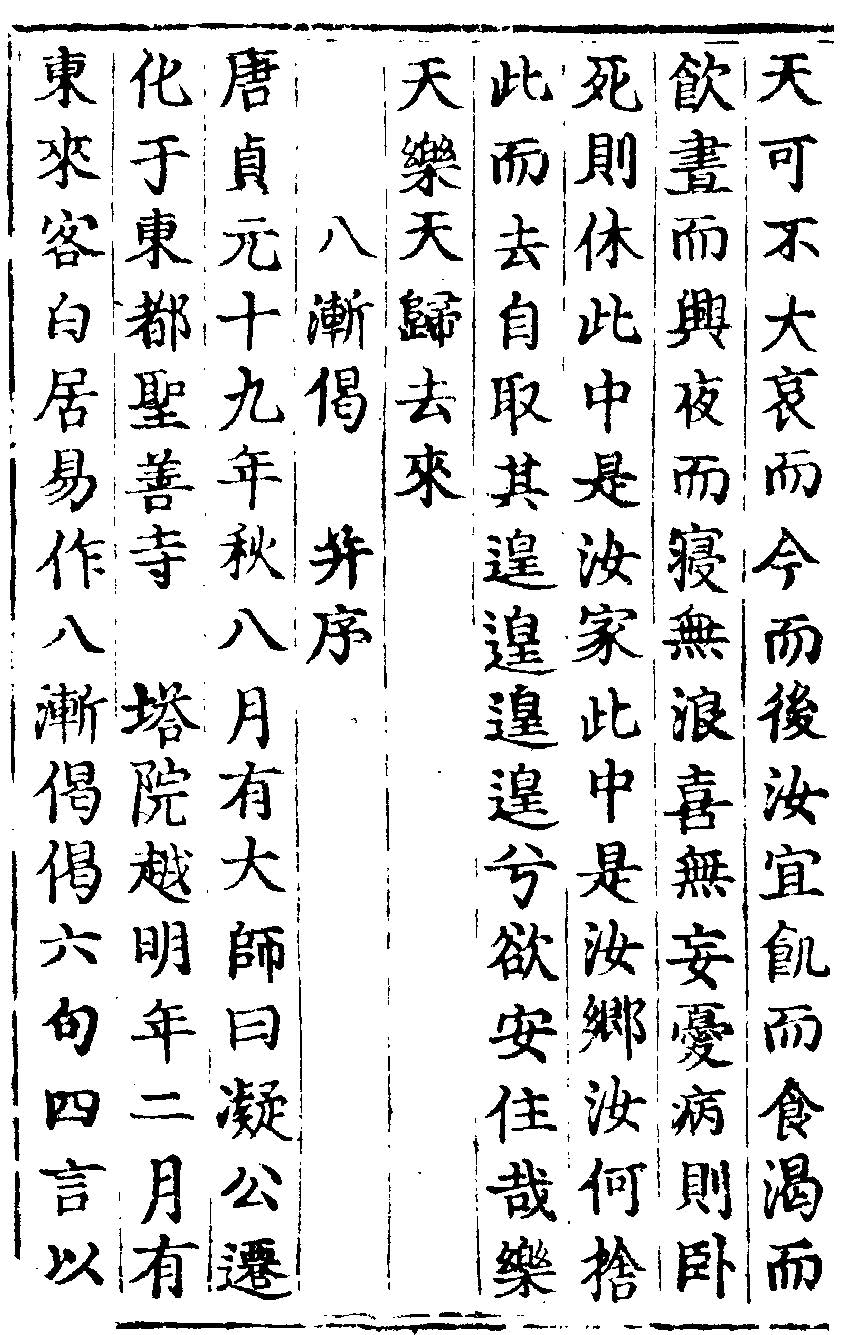 天可不大哀而今而後汝宜飢而食渴而
飲晝而興夜而寢無浪喜無妄憂病則臥
死則休此中是汝家此中是汝鄉汝何捨
此而去自取其遑遑遑遑兮欲安住哉樂
天樂天歸去來
八漸偈 并序
唐貞元十九年秋八月有大師曰凝公遷
化于東都聖善寺 塔院越明年二月有
東來客白居易作八漸偈偈六句四言以